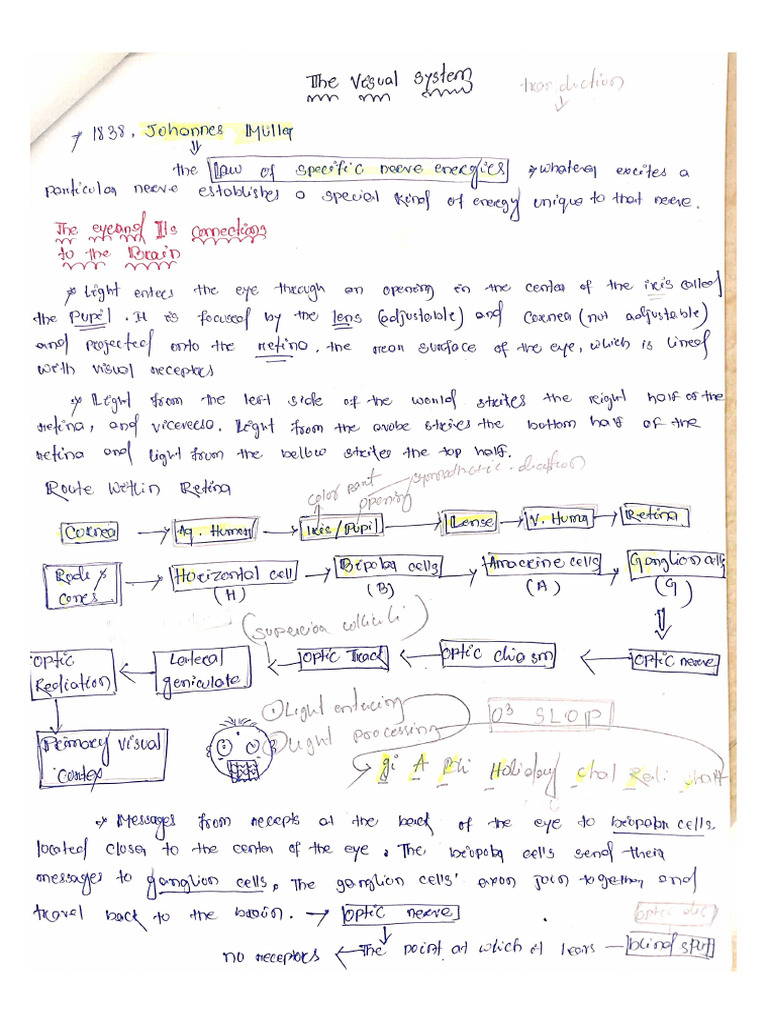 The Visual System
transduction
1838, Johannes Müller
the Law of specific nerve energies whatever excites a
particular nerve establishes a special kind of energy unique to that nerve.
The eye and Its Connections
to the Brain
Light enters the eye through an opening in the center of the iris called
the Pupil. It is focused by the lens (adjustable) and cornea (not adjustable)
and projected onto the retina, the rear surface of the eye, which is lined
with visual receptors
Light from the left side of the world strikes the right half of the
retina, and viceversa. Light from the avobe strikes the bottom half of the
retina and light from the bellow strikes the top half.
Route Within Retina
color part
opening
Cornea Aq. Humer Iris/Pupil Lense V. Huma Retina
Rods Horizontal cell Bipolar cells Amacrine cells Ganglion cells
Cones (H) (B) (A) (G)
(Superior colliculi)
Optic Lateral Optic Track Optic chiasm Optic nerve
Radiation geniculate
① Light entering
② Light processing
O³ SLOP
Primary Visual
Cortex
gi A Holiday chal
Messages from recepts at the back of the eye to biopolar cells
located closer to the center of the eye. The biopolar cells send their
messages to ganglion cells. The ganglion cells' axon join together, and
travel back to the brain. Optic nerve
optic disc
no receptors The point at which it leaves blind spot